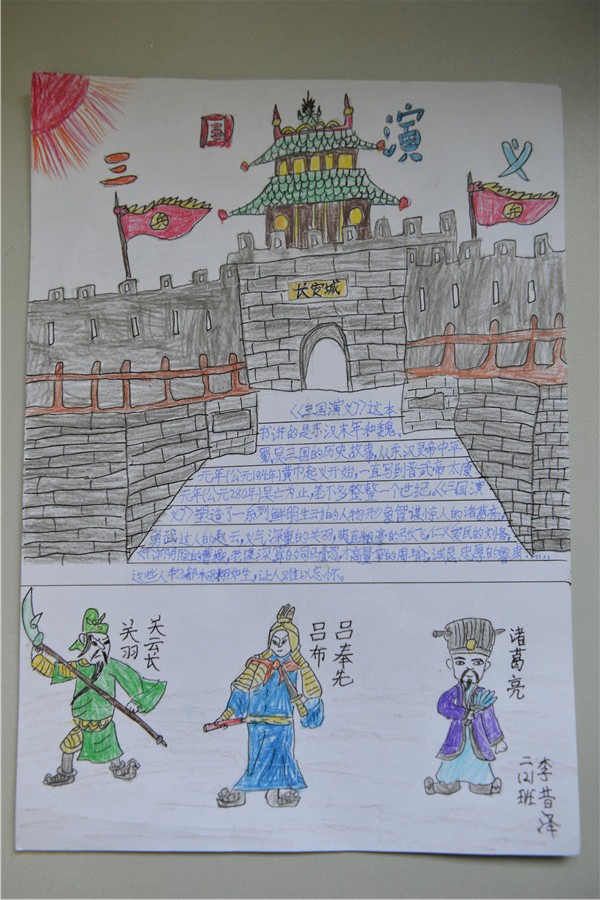 三国演义
兵
兵
长安城
《三国演义》这本
书讲的是东汉末年和魏、
蜀、吴三国的历史故事,从东汉灵帝中平
元年(公元184年)黄巾起义开始,一直写到晋武帝太康
元年(公元280年)吴亡为止,差不多整整一个世纪。《三国演
义》塑造了一系列鲜明生动的人物形象智谋惊人的诸葛亮,
勇武过人的赵云,义气深重的关羽,爽直粗鲁的张飞,仁义爱民的刘备,
奸诈阴险的曹操,老谋深算的司马懿,才高量窄的周瑜,诚恳忠厚的鲁肃……
这些人物都栩栩如生,让人难以忘怀。
关云长
关羽
吕奉先
吕布
诸葛亮
李昔泽
二(2)班